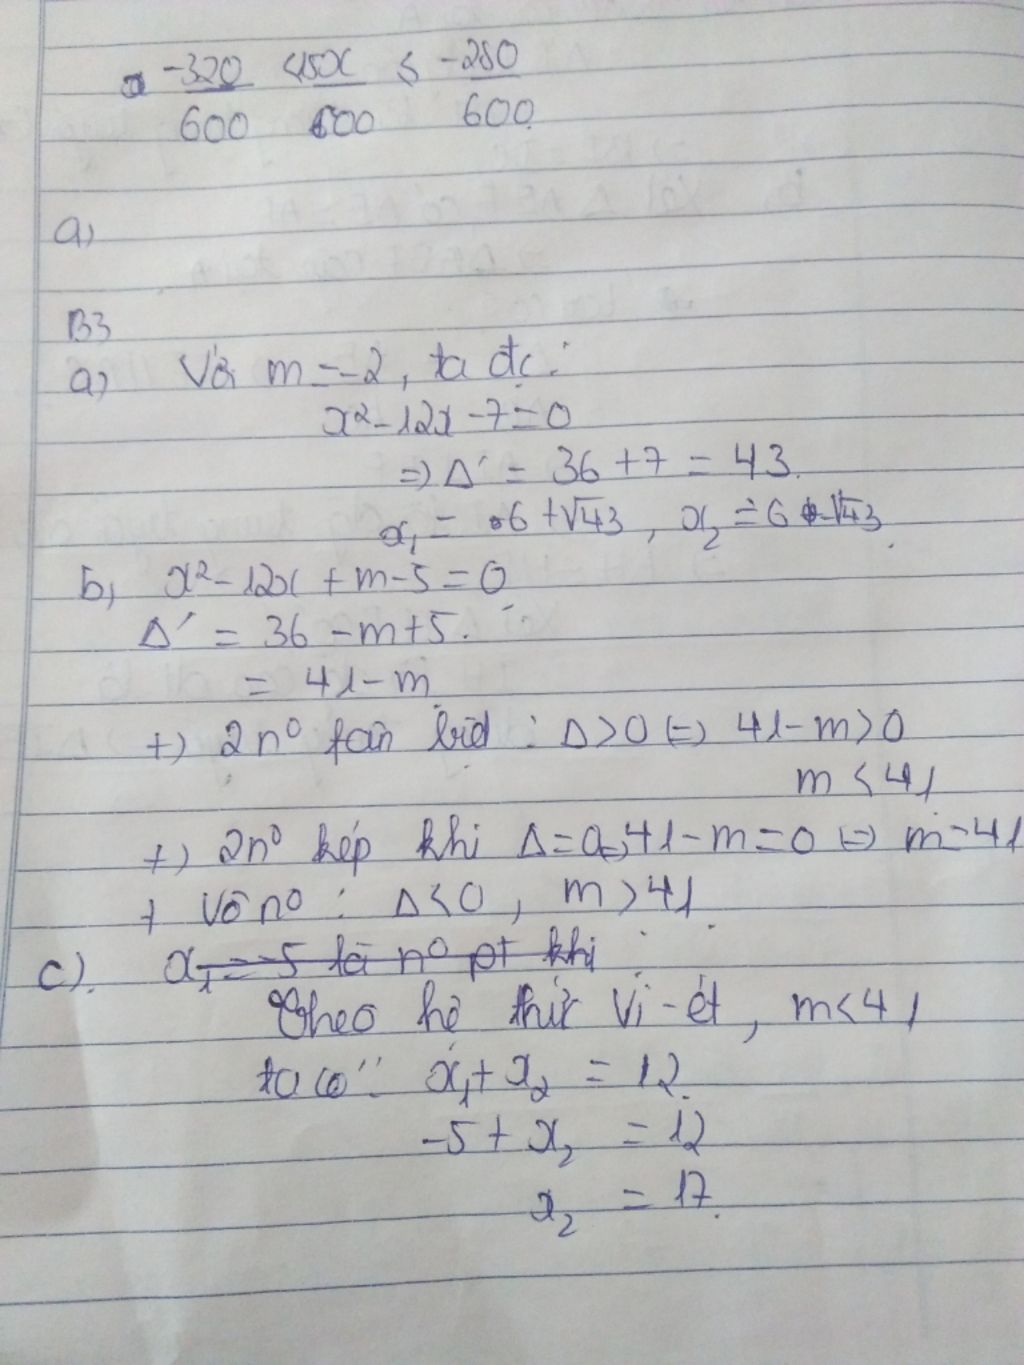 -320/600 < 15x/600 < -280/600
a)
B3
a) Với m = -2, ta đc:
x² - 12x - 7 = 0
=> Δ' = 36 + 7 = 43.
x₁ = 6 + √43, x₂ = 6 - √43.
b) x² - 12x + m - 5 = 0
Δ' = 36 - m + 5.
= 41 - m
+) 2n⁰ fân biệt : Δ > 0 <=> 41 - m > 0
m < 41
+) 2n⁰ kép khi Δ = 0 <=> 41 - m = 0 <=> m = 41
+ Vô n⁰ : Δ < 0, m > 41.
c). x₁ = -5 là n⁰ pt khi
Theo hệ thức Vi-ét, m < 41
ta có: x₁ + x₂ = 12.
-5 + x₂ = 12
x₂ = 17.